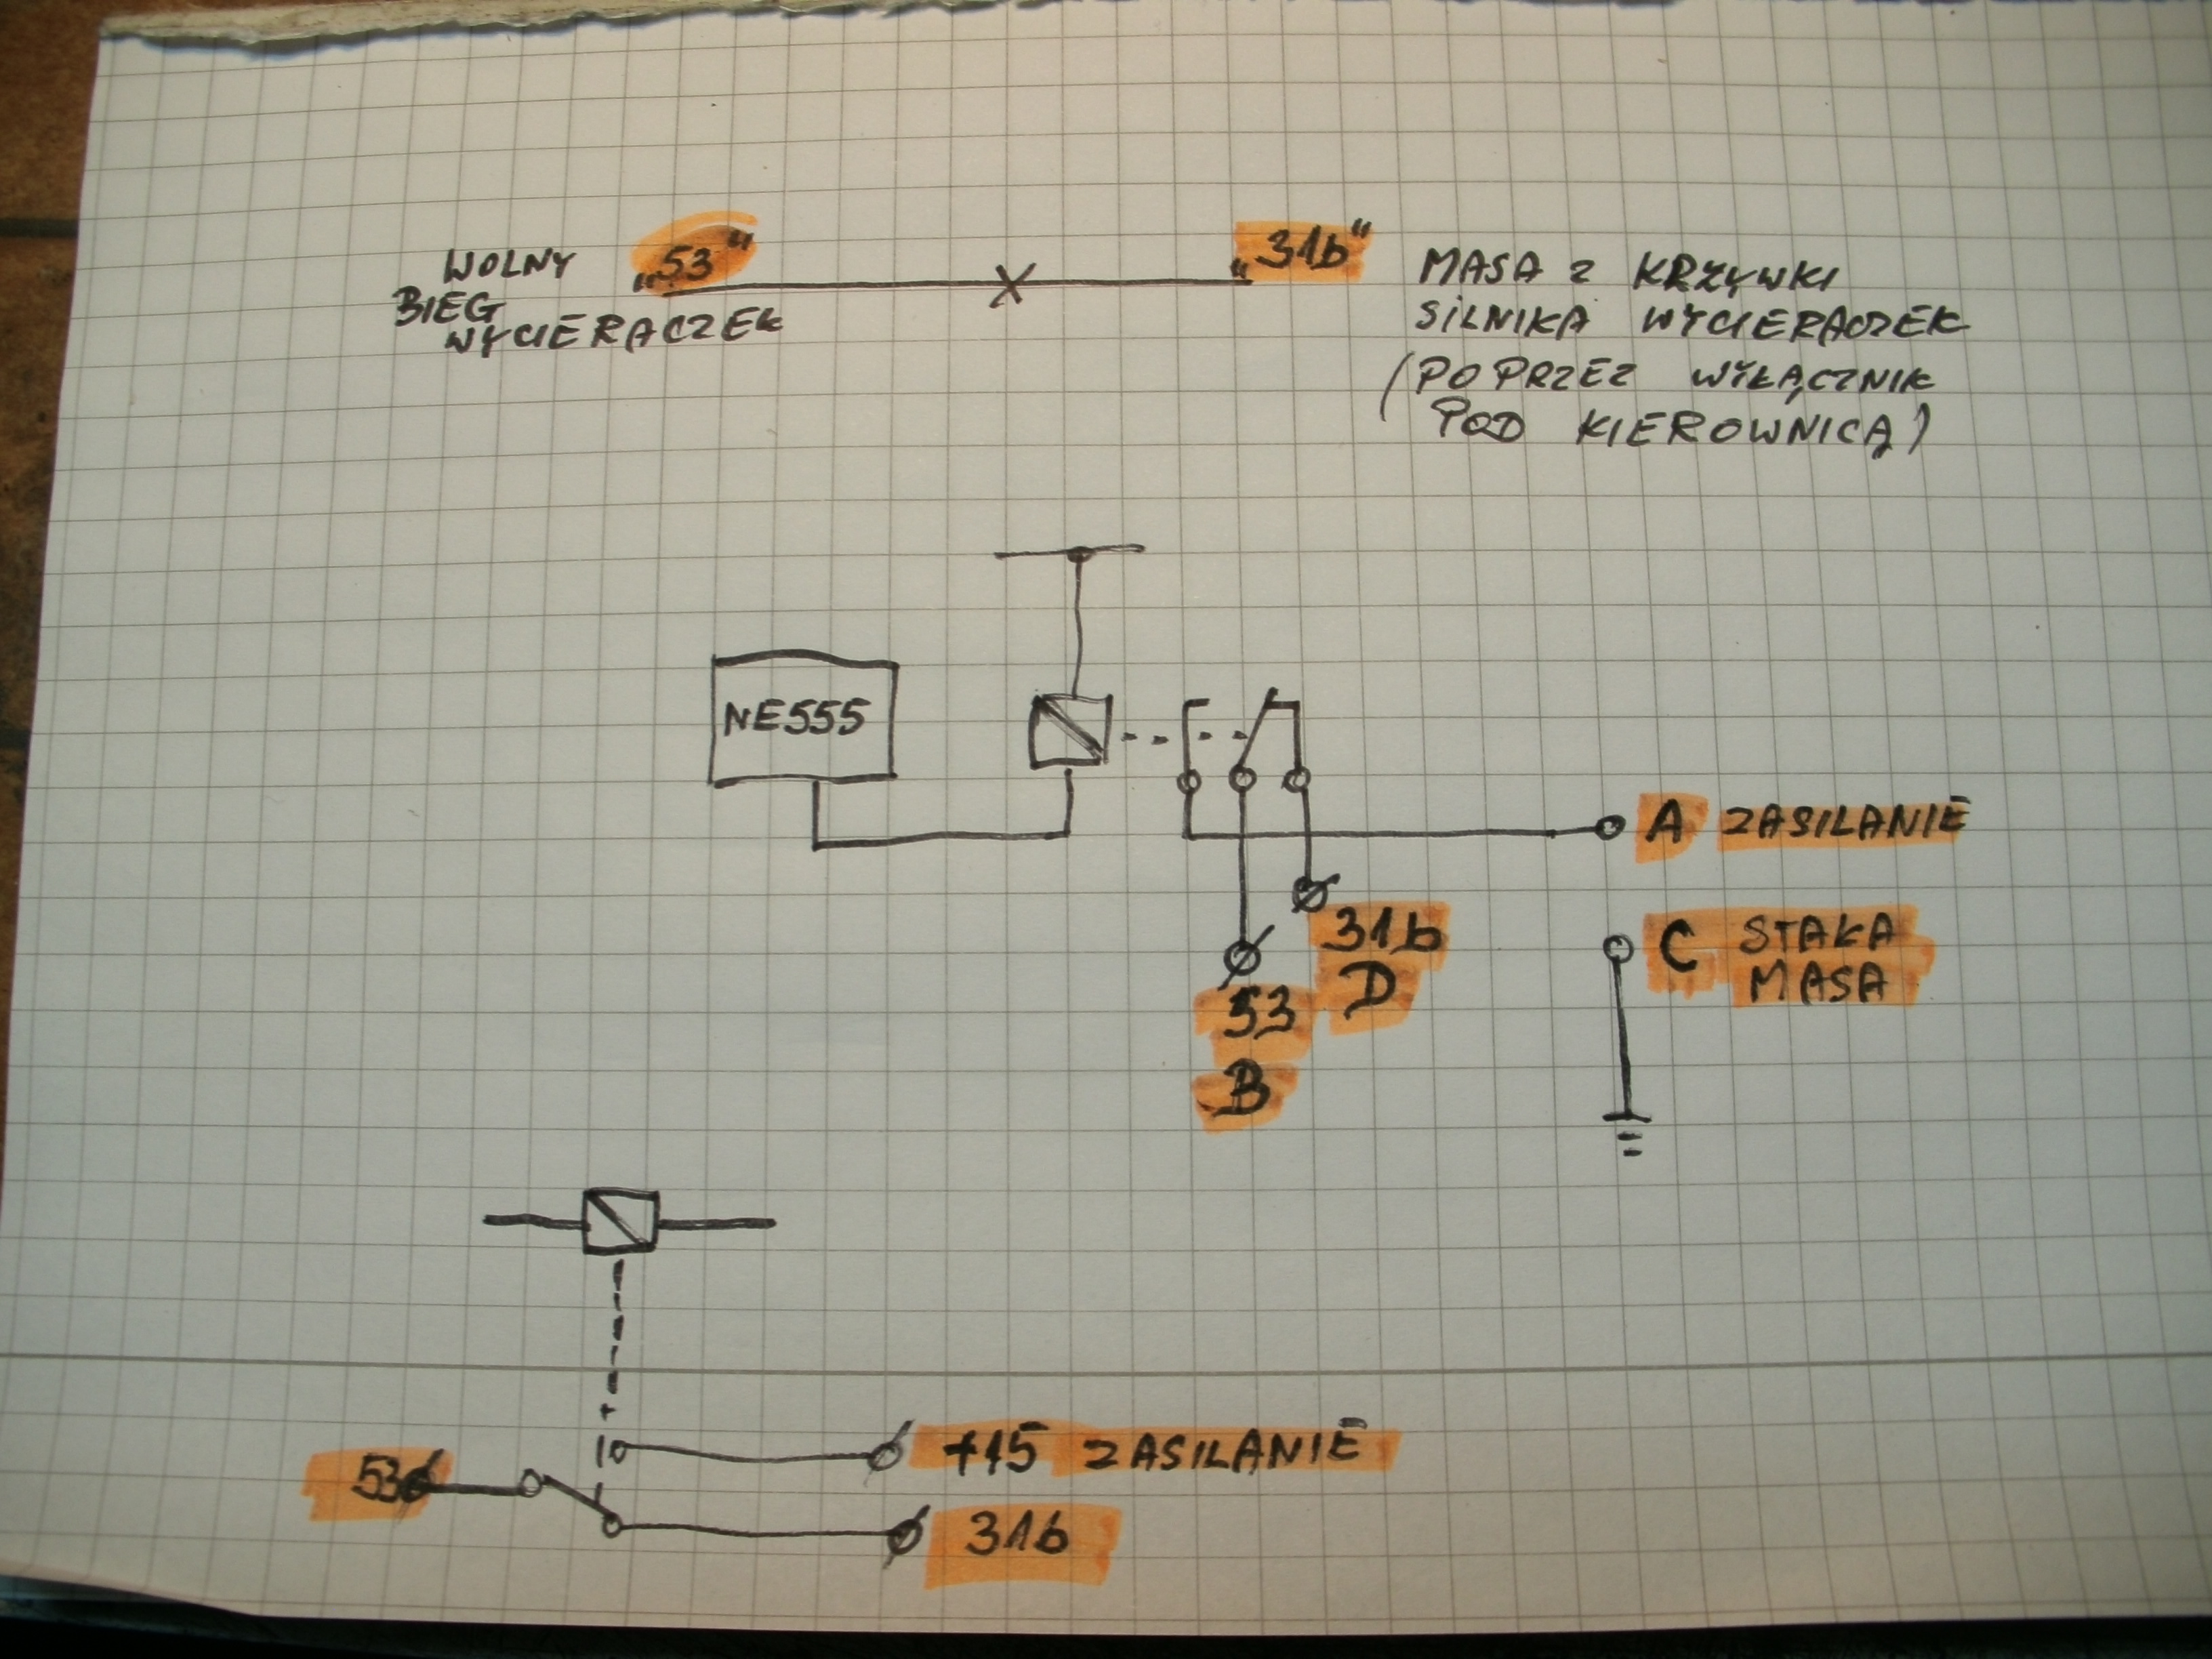 WOLNY
BIEG
WYCIERACZEK
„53"
„31b"
MASA Z KRZYWKI
SILNIKA WYCIERACZEK
(POPRZEZ WYŁĄCZNIK
POD KIEROWNICĄ)
NE555
A ZASILANIE
31b
D
C STAŁA
MASA
53
B
53
+15 ZASILANIE
31b